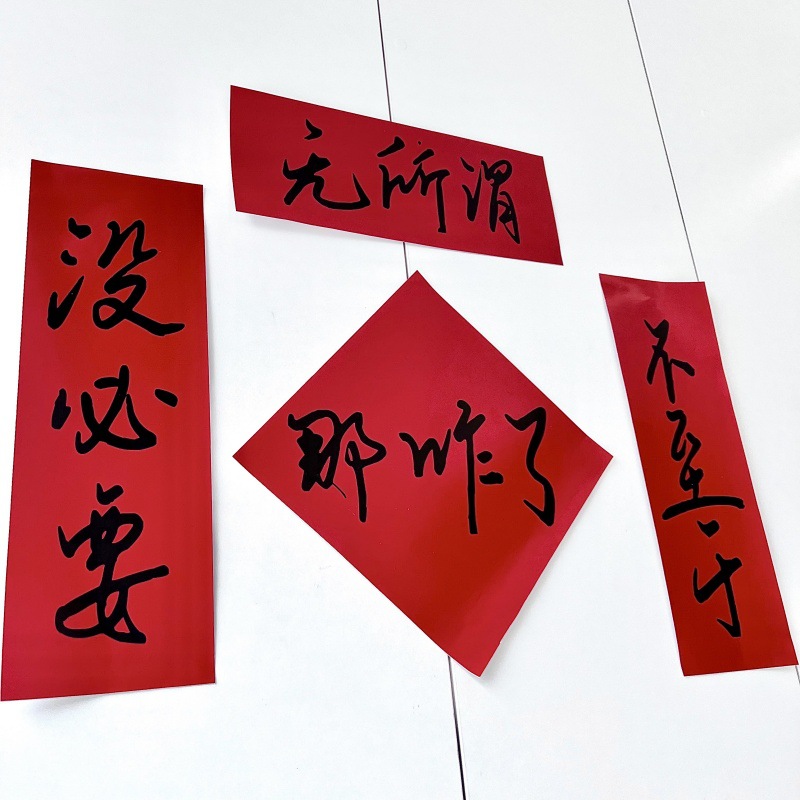 无所谓
没必要
那咋了
不至于